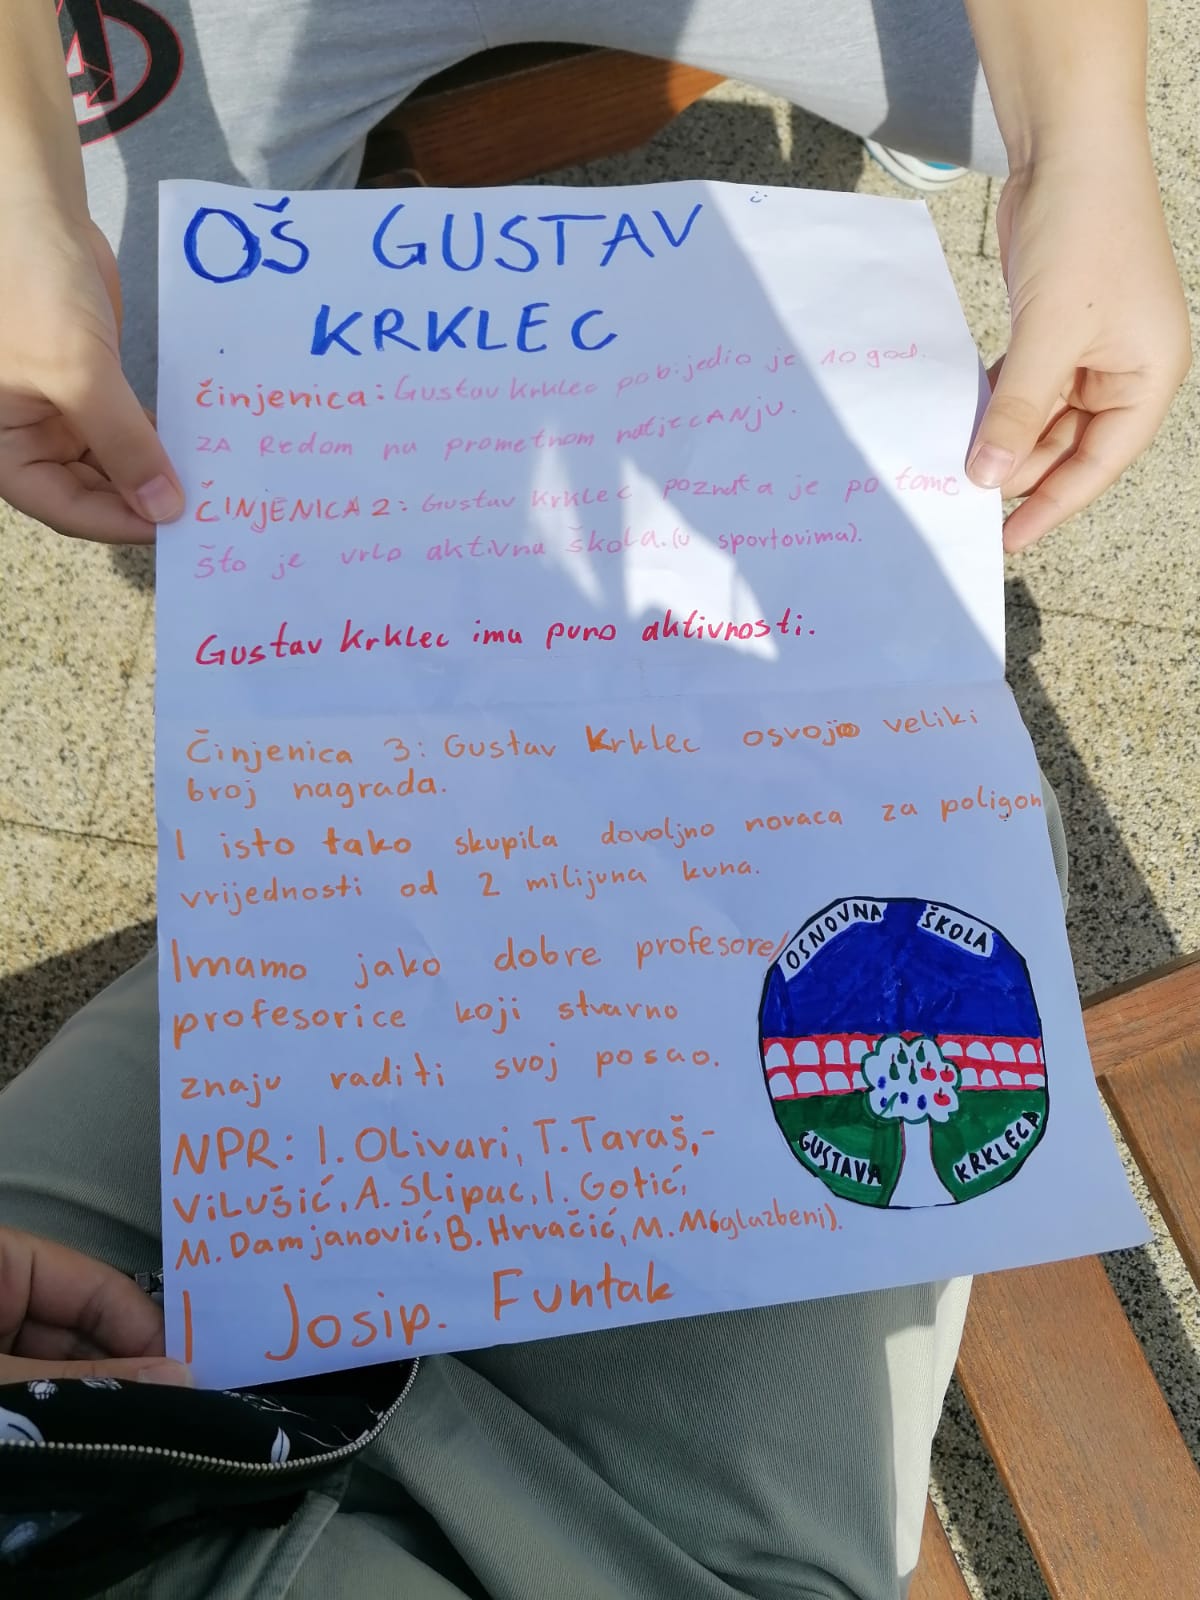 OŠ GUSTAV
KRKLEC
činjenica: Gustav Krklec pobijedio je 10 god.
ZA Redom na prometnom natjecANju.
ČINJENICA 2: Gustav Krklec poznata je po tome
što je vrlo aktivna škola.(u sportovima).
Gustav Krklec ima puno aktivnosti.
Činjenica 3: Gustav Krklec osvojio veliki
broj nagrada.
I isto tako skupila dovoljno novaca za poligon
vrijednosti od 2 milijuna kuna.
Imamo jako dobre profesore/
profesorice koji stvarno
znaju raditi svoj posao.
NPR: I. Olivari, T. Taraš,-
Vilušić, A. Slipac, I. Gotić,
M. Damjanović, B. Hrvačić, M. M(glazbeni).
I Josip. Funtak
OSNOVNA ŠKOLA
GUSTAVA KRKLECA